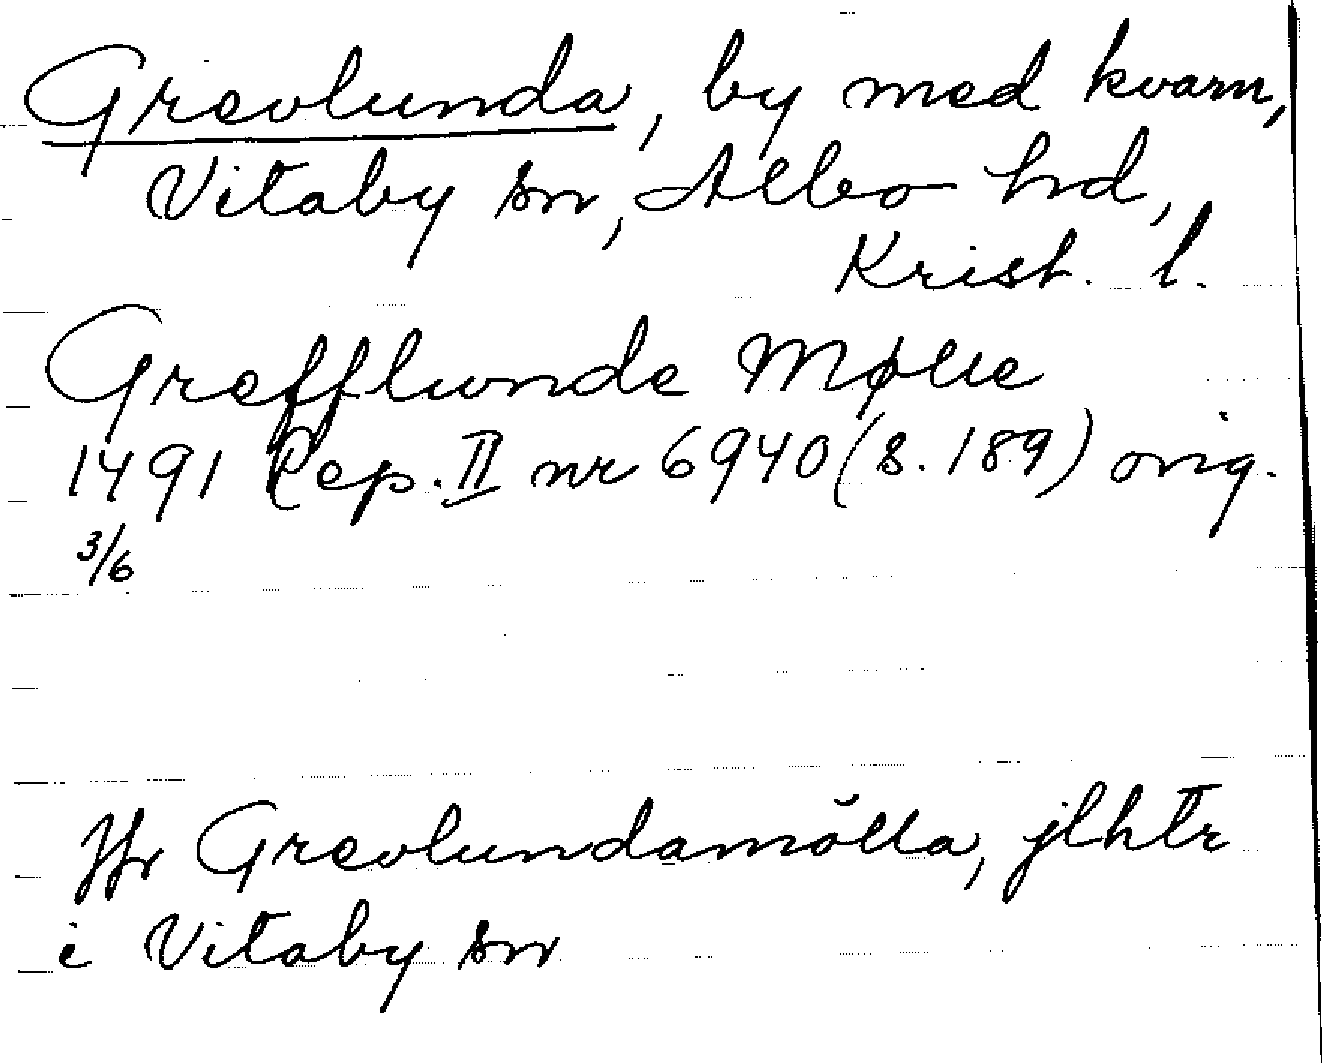 Grevlunda, by med kvarn,
Vitaby sn, Albo hd,
Krist. l.
Grefflunde Mølle
1491 Rep. II nr 6940 (s. 189) orig.
3/6
Jfr Grevlundamölla, jlhtr
i Vitaby sn